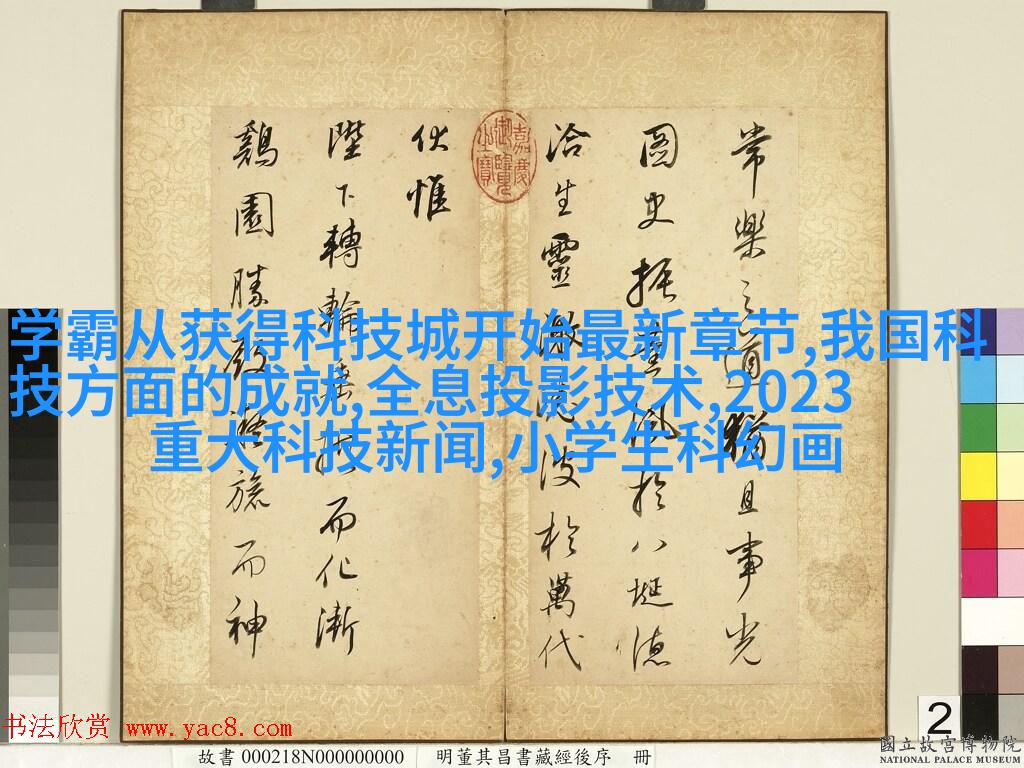 常樂之道猶且事光
圖史振薰風於八埏德
洽生靈激波於萬代
嘉慶御覽之寶
伏惟
陛下轉輪垂拱而化漸
鷄園勝殿凝旒而神
学霸从获得科技城开始最新章节,我国科
技方面的成就,全息投影技术,2023
重大科技新闻,小学生科幻画
2
书法欣赏 www.yac8.com
故書 000218N000000000 明董其昌書藏經後序 冊
國立故宮博物院
NATIONAL PALACE MUSEUM